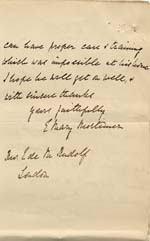 can have proper care & training
which was impossible at his home
I hope he will get on well, &
with sincere thanks
Yours faithfully
E Mary Mortimer
Rev. E de M. Rudolf
London